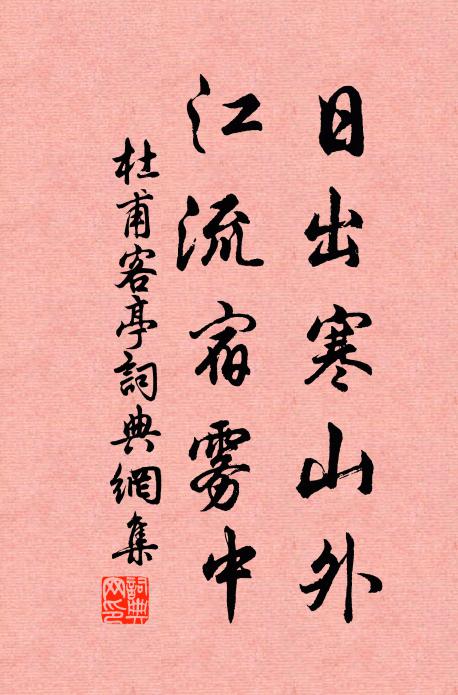 日出寒山外
江流宿雾中
杜甫客亭詞典網集
詞典
网印